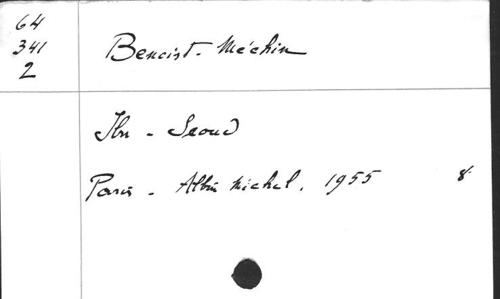 64
341
2
Benoist-Méchin
Ibn-Seoud
Paris - Albin Michel. 1955 8°